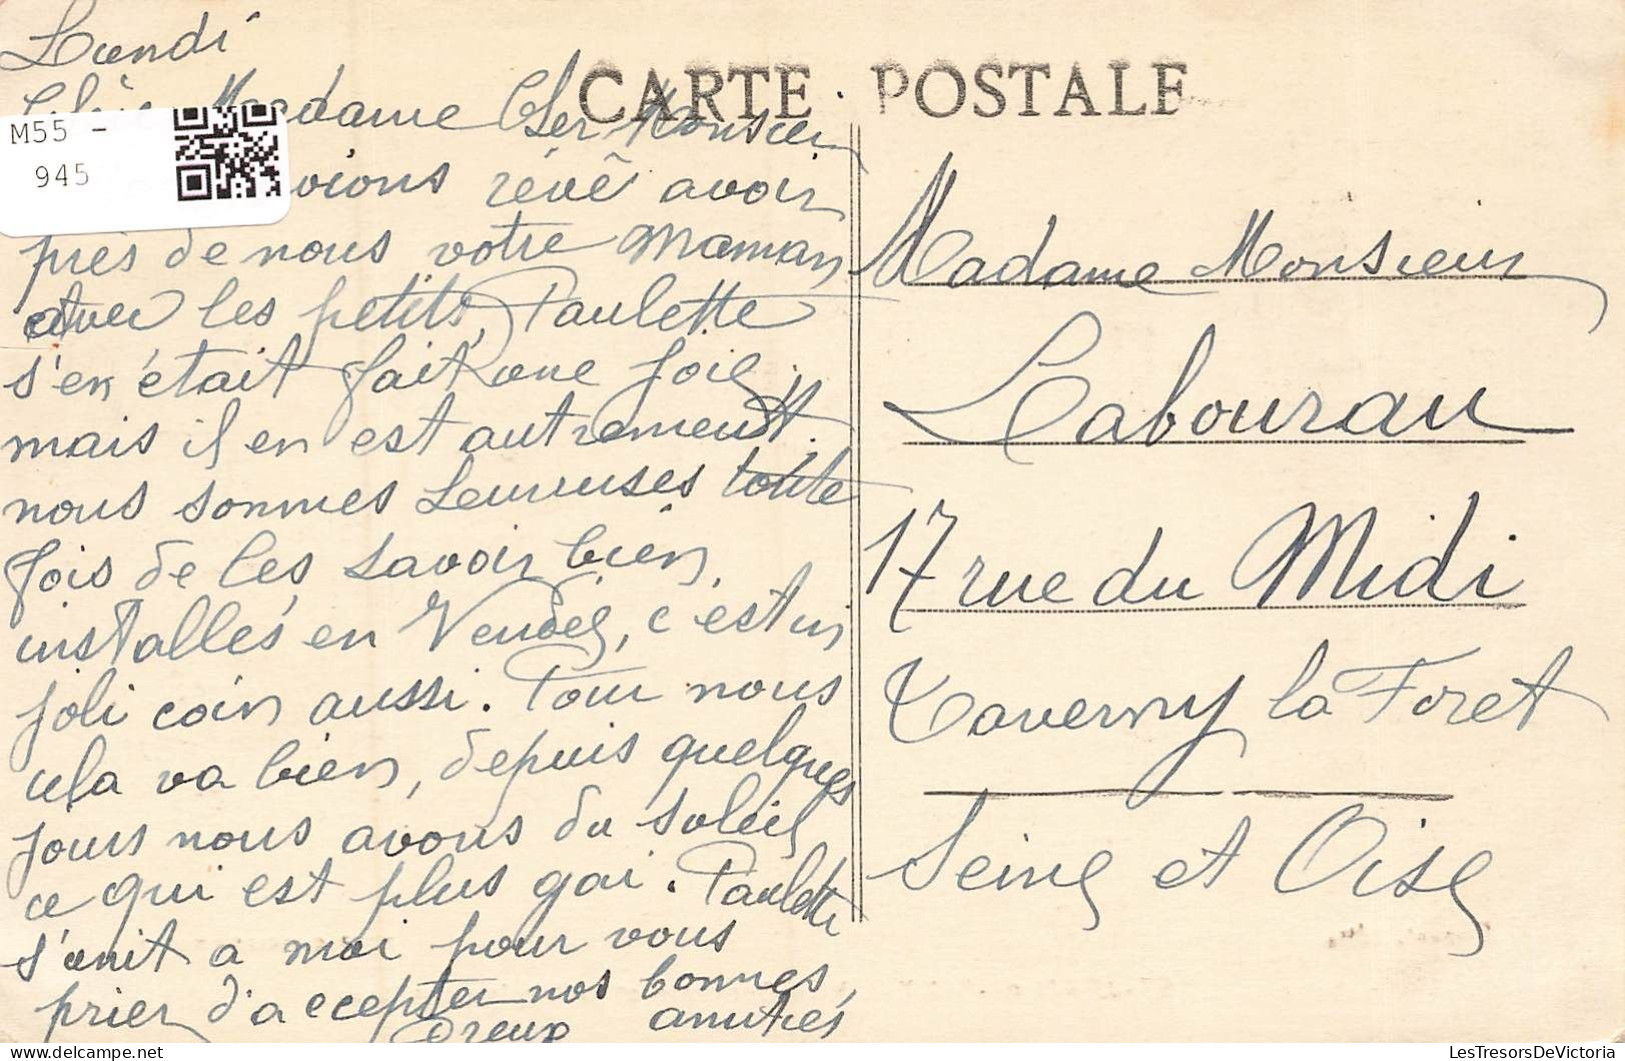 Lundi
Madame Cher Monsieur
M55 -
945
rêvé avoir
près de nous votre Maman
avec les petits, Paulette
s'en était fait une joie,
mais il en est autrement.
nous sommes heureuses toute
fois de les savoir bien
installés en Vendée, c'est un
joli coin aussi. Pour nous
cela va bien, depuis quelques
jours nous avons du soleil
ce qui est plus gai. Paulette
s'unit a moi pour vous
prier d'accepter nos bonnes
amitiés
CARTE POSTALE
Madame Monsieur
Labourau
17 rue du Midi
Taverny la Foret
Seine et Oise
LesTresorsDeVictoria.com